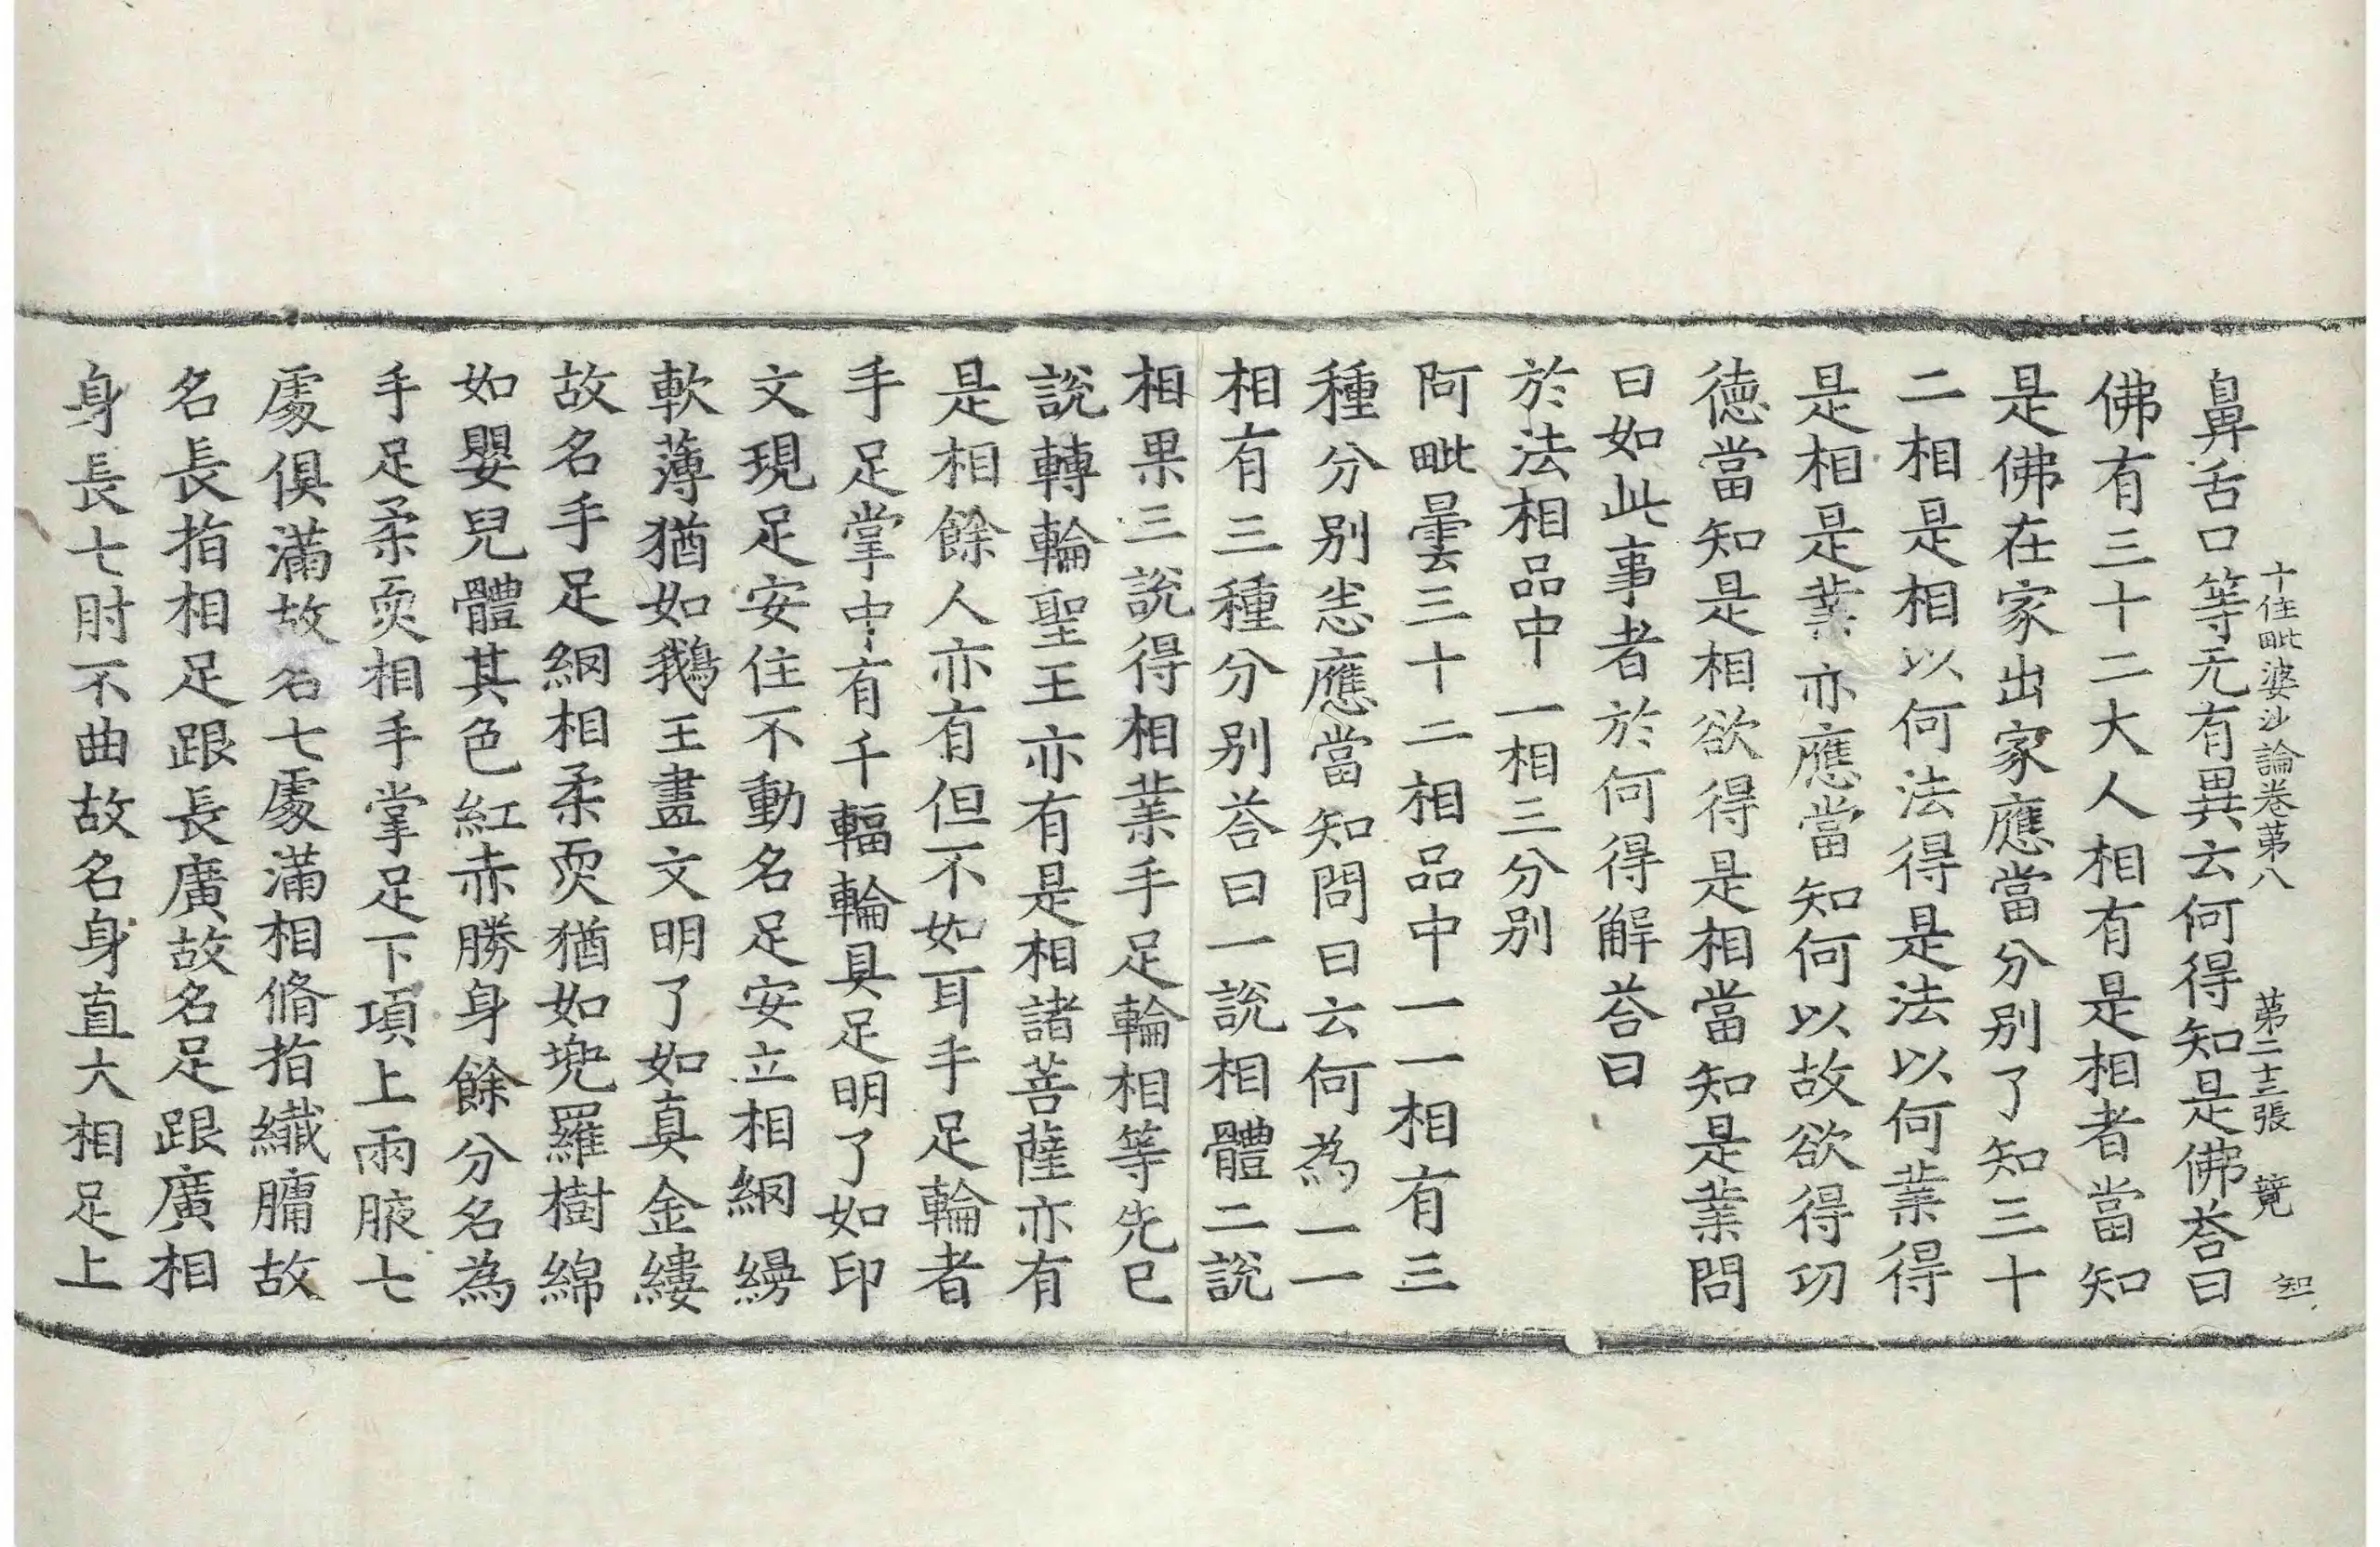 十住毗婆沙論卷第八　第二十三張　竟　知
鼻舌口等无有異云何得知是佛荅曰
佛有三十二大人相有是相者當知
是佛在家出家應當分别了知三十
二相是相以何法得是法以何業得
是相是業亦應當知何以故欲得功
德當知是相欲得是相當知是業問
曰如此事者於何得解荅曰
於法相品中一相三分别
阿毗曇三十二相品中一一相有三
種分别恙應當知問曰云何為一一
相有三種分别荅曰一說相體二說
相果三說得相業手足輪相等先已
說轉輪聖王亦有是相諸菩薩亦有
是相餘人亦有但不如耳手足輪者
手足掌中有千輻輪具足明了如印
文現足安住不動名足安立相網縵
軟薄猶如鵝王畫文明了如真金縷
故名手足網相柔耎猶如兠羅樹綿
如嬰兒體其色紅赤勝身餘分名為
手足柔耎相手掌足下項上兩腋七
處俱滿故名七處滿相脩指纖𦟛故
名長指相足跟長廣故名足跟廣相
身長七肘不曲故名身直大相足上